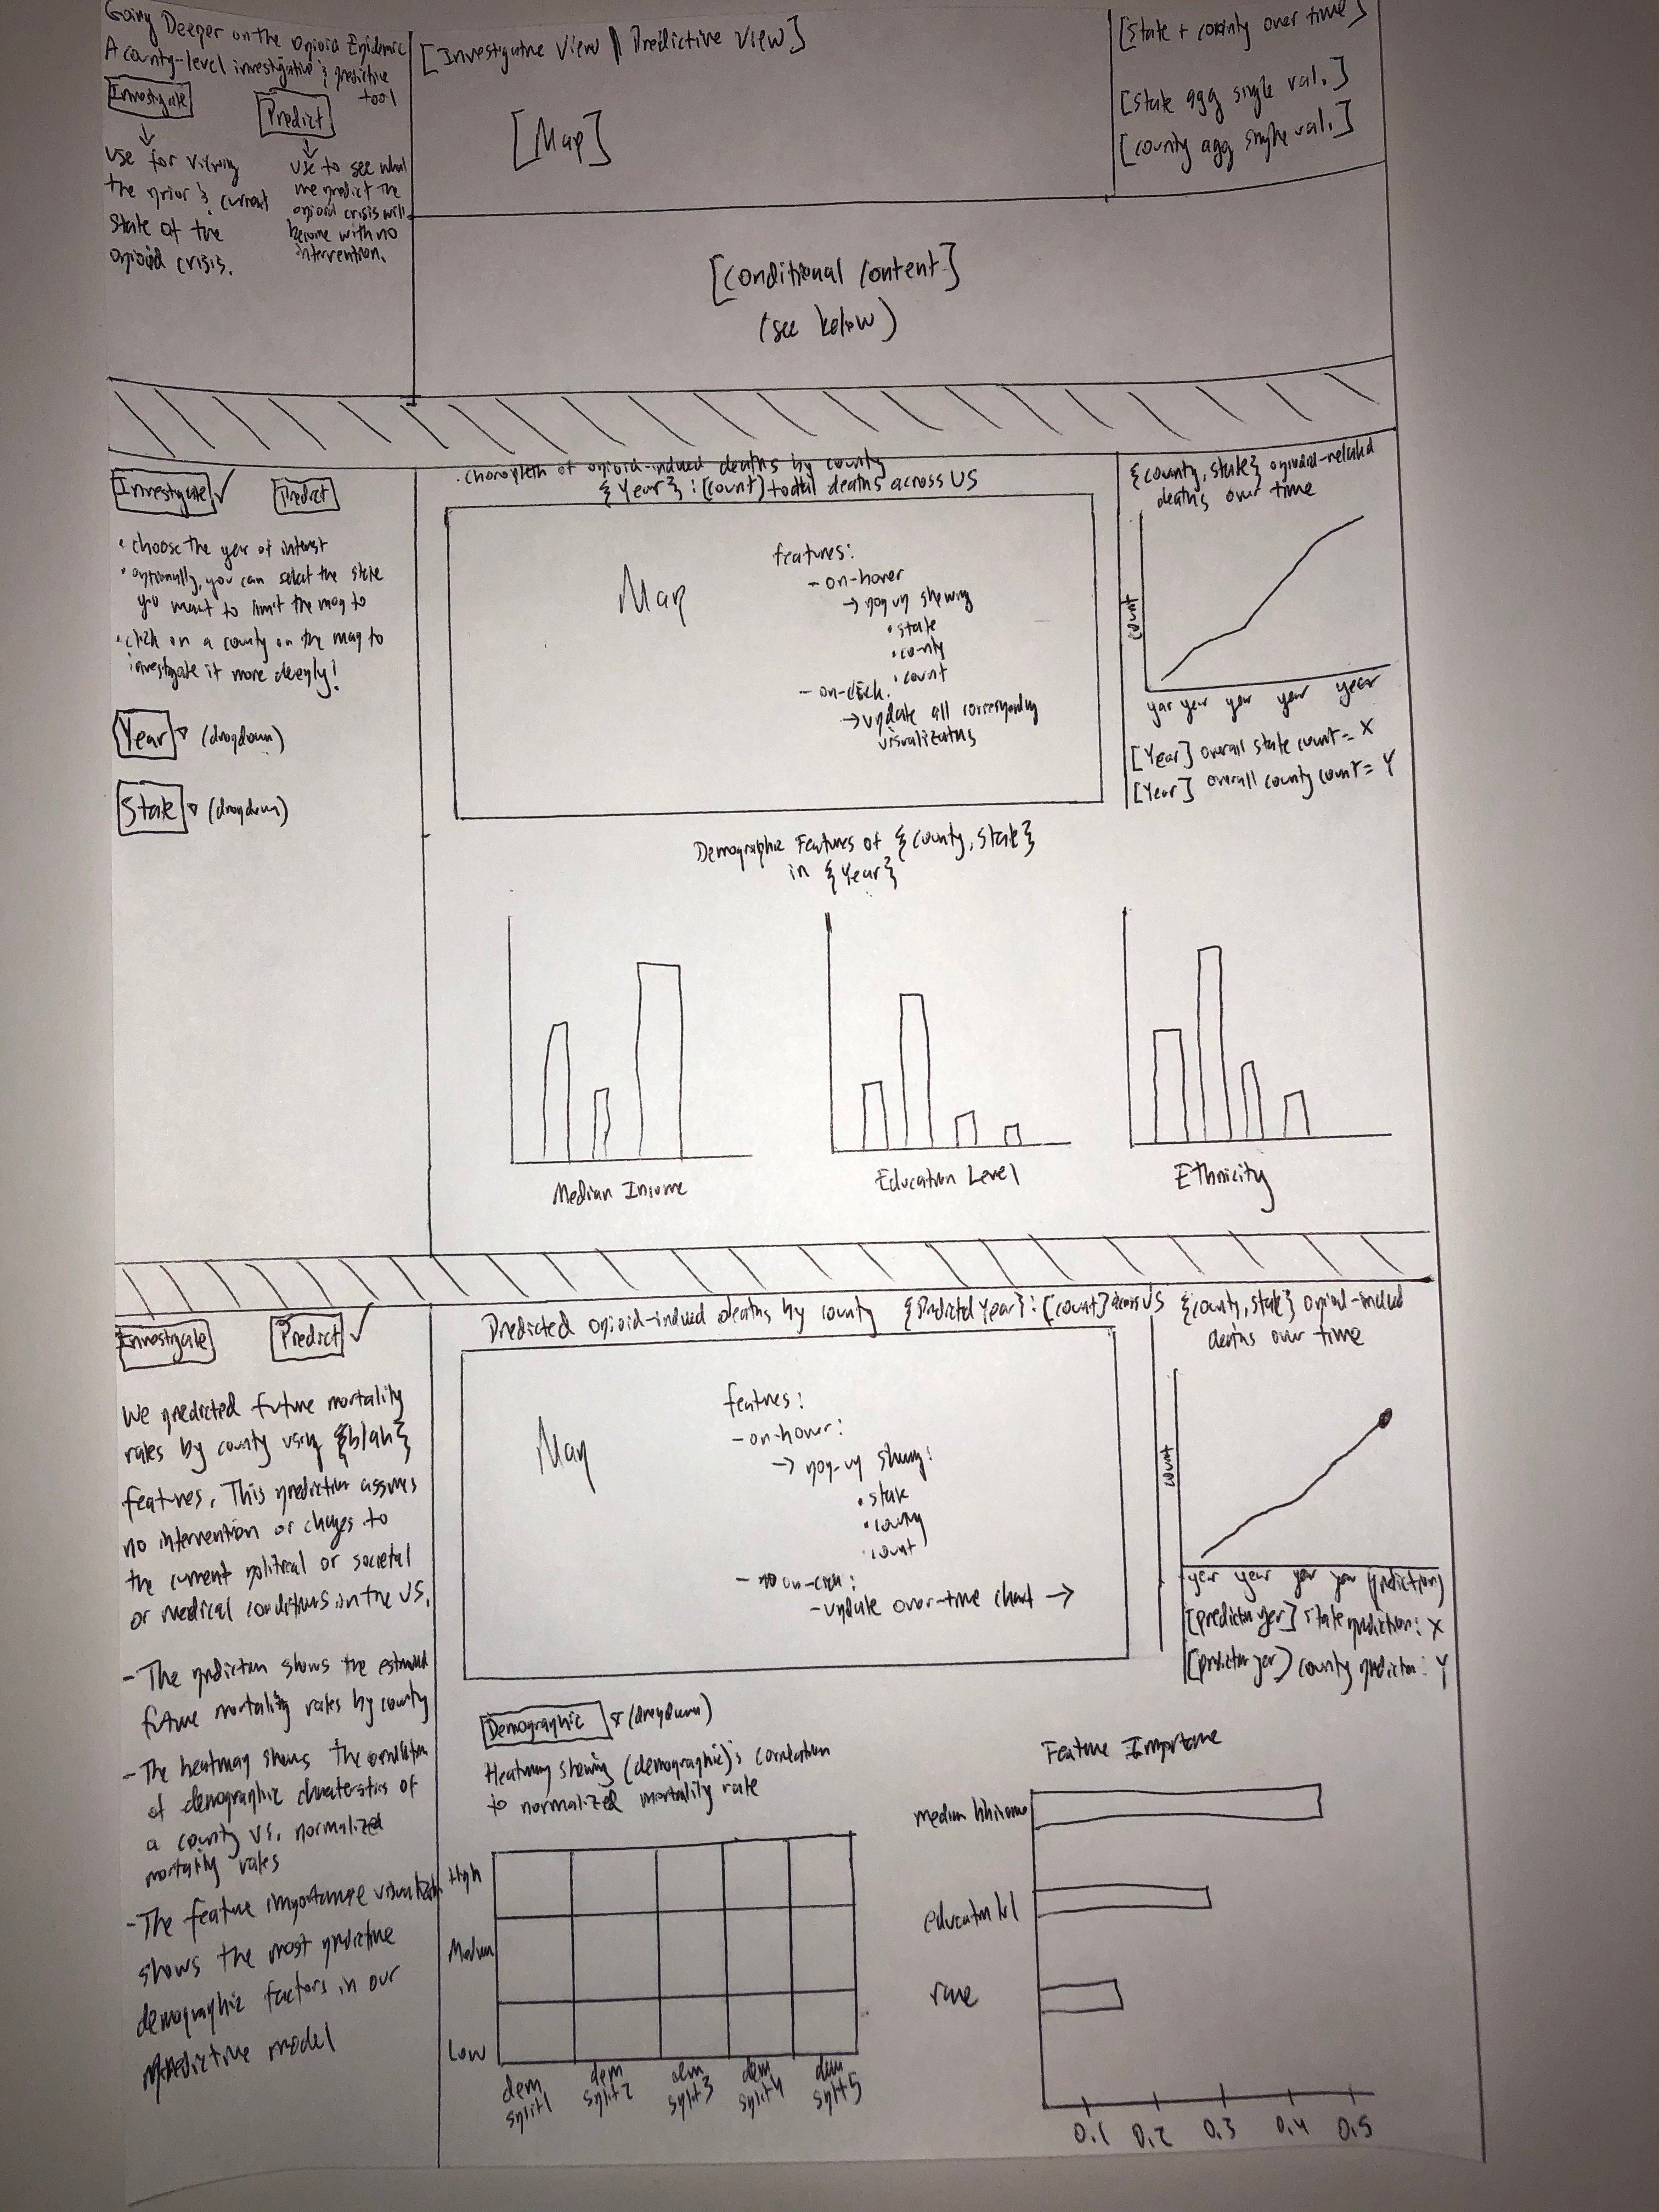 Going Deeper on the Opioid Epidemic
A county-level investigative & predictive
tool
Investigate
Predict
use for viewing
the prior & current
state of the
opioid crisis.
use to see what
we predict the
opioid crisis will
become with no
intervention.
[Investigative View || Predictive View]
[Map]
[State + county over time]
[State agg single val.]
[county agg single val.]
[conditional content]
(see below)
Investigate
Predict
• choose the year of interest
• optionally, you can select the state
you want to limit the map to
• click on a county on the map to
investigate it more deeply!
Year (dropdown)
State (dropdown)
choropleth of opioid-induced deaths by county
{Year}: [count] total deaths across US
Map
features:
- on-hover
→ pop up showing
• state
• county
• count
- on-click:
→ update all corresponding
visualizations
{county, state} opioid-related
deaths over time
count
year year year year year
[Year] overall state count = X
[Year] overall county count = Y
Demographic Features of {county, state}
in {Year}
Median Income
Education Level
Ethnicity
Investigate
Predict
We predicted future mortality
rates by county using {blah}
features. This prediction assumes
no intervention or changes to
the current political or societal
or medical conditions in the US.
- The prediction shows the estimated
future mortality rates by county
- The heatmap shows the correlation
of demographic characteristics of
a county vs. normalized
mortality rates
- The feature importance visualization
shows the most predictive
demographic factors in our
predictive model
Predicted opioid-induced deaths by county {Predicted Year}: [count] across US
Map
features:
- on-hover:
→ pop-up showing:
• state
• county
• count
- on-click:
- update over-time chart →
{county, state} opioid-induced
deaths over time
count
year year year year (prediction)
[prediction year] state prediction: X
[prediction year] county prediction: Y
Demographic (dropdown)
Heatmap showing (demographic)'s correlation
to normalized mortality rate
High
Medium
Low
dem split1
dem split2
dem split3
dem split4
dem split5
Feature Importance
median hhincome
education lvl
race
0.1 0.2 0.3 0.4 0.5